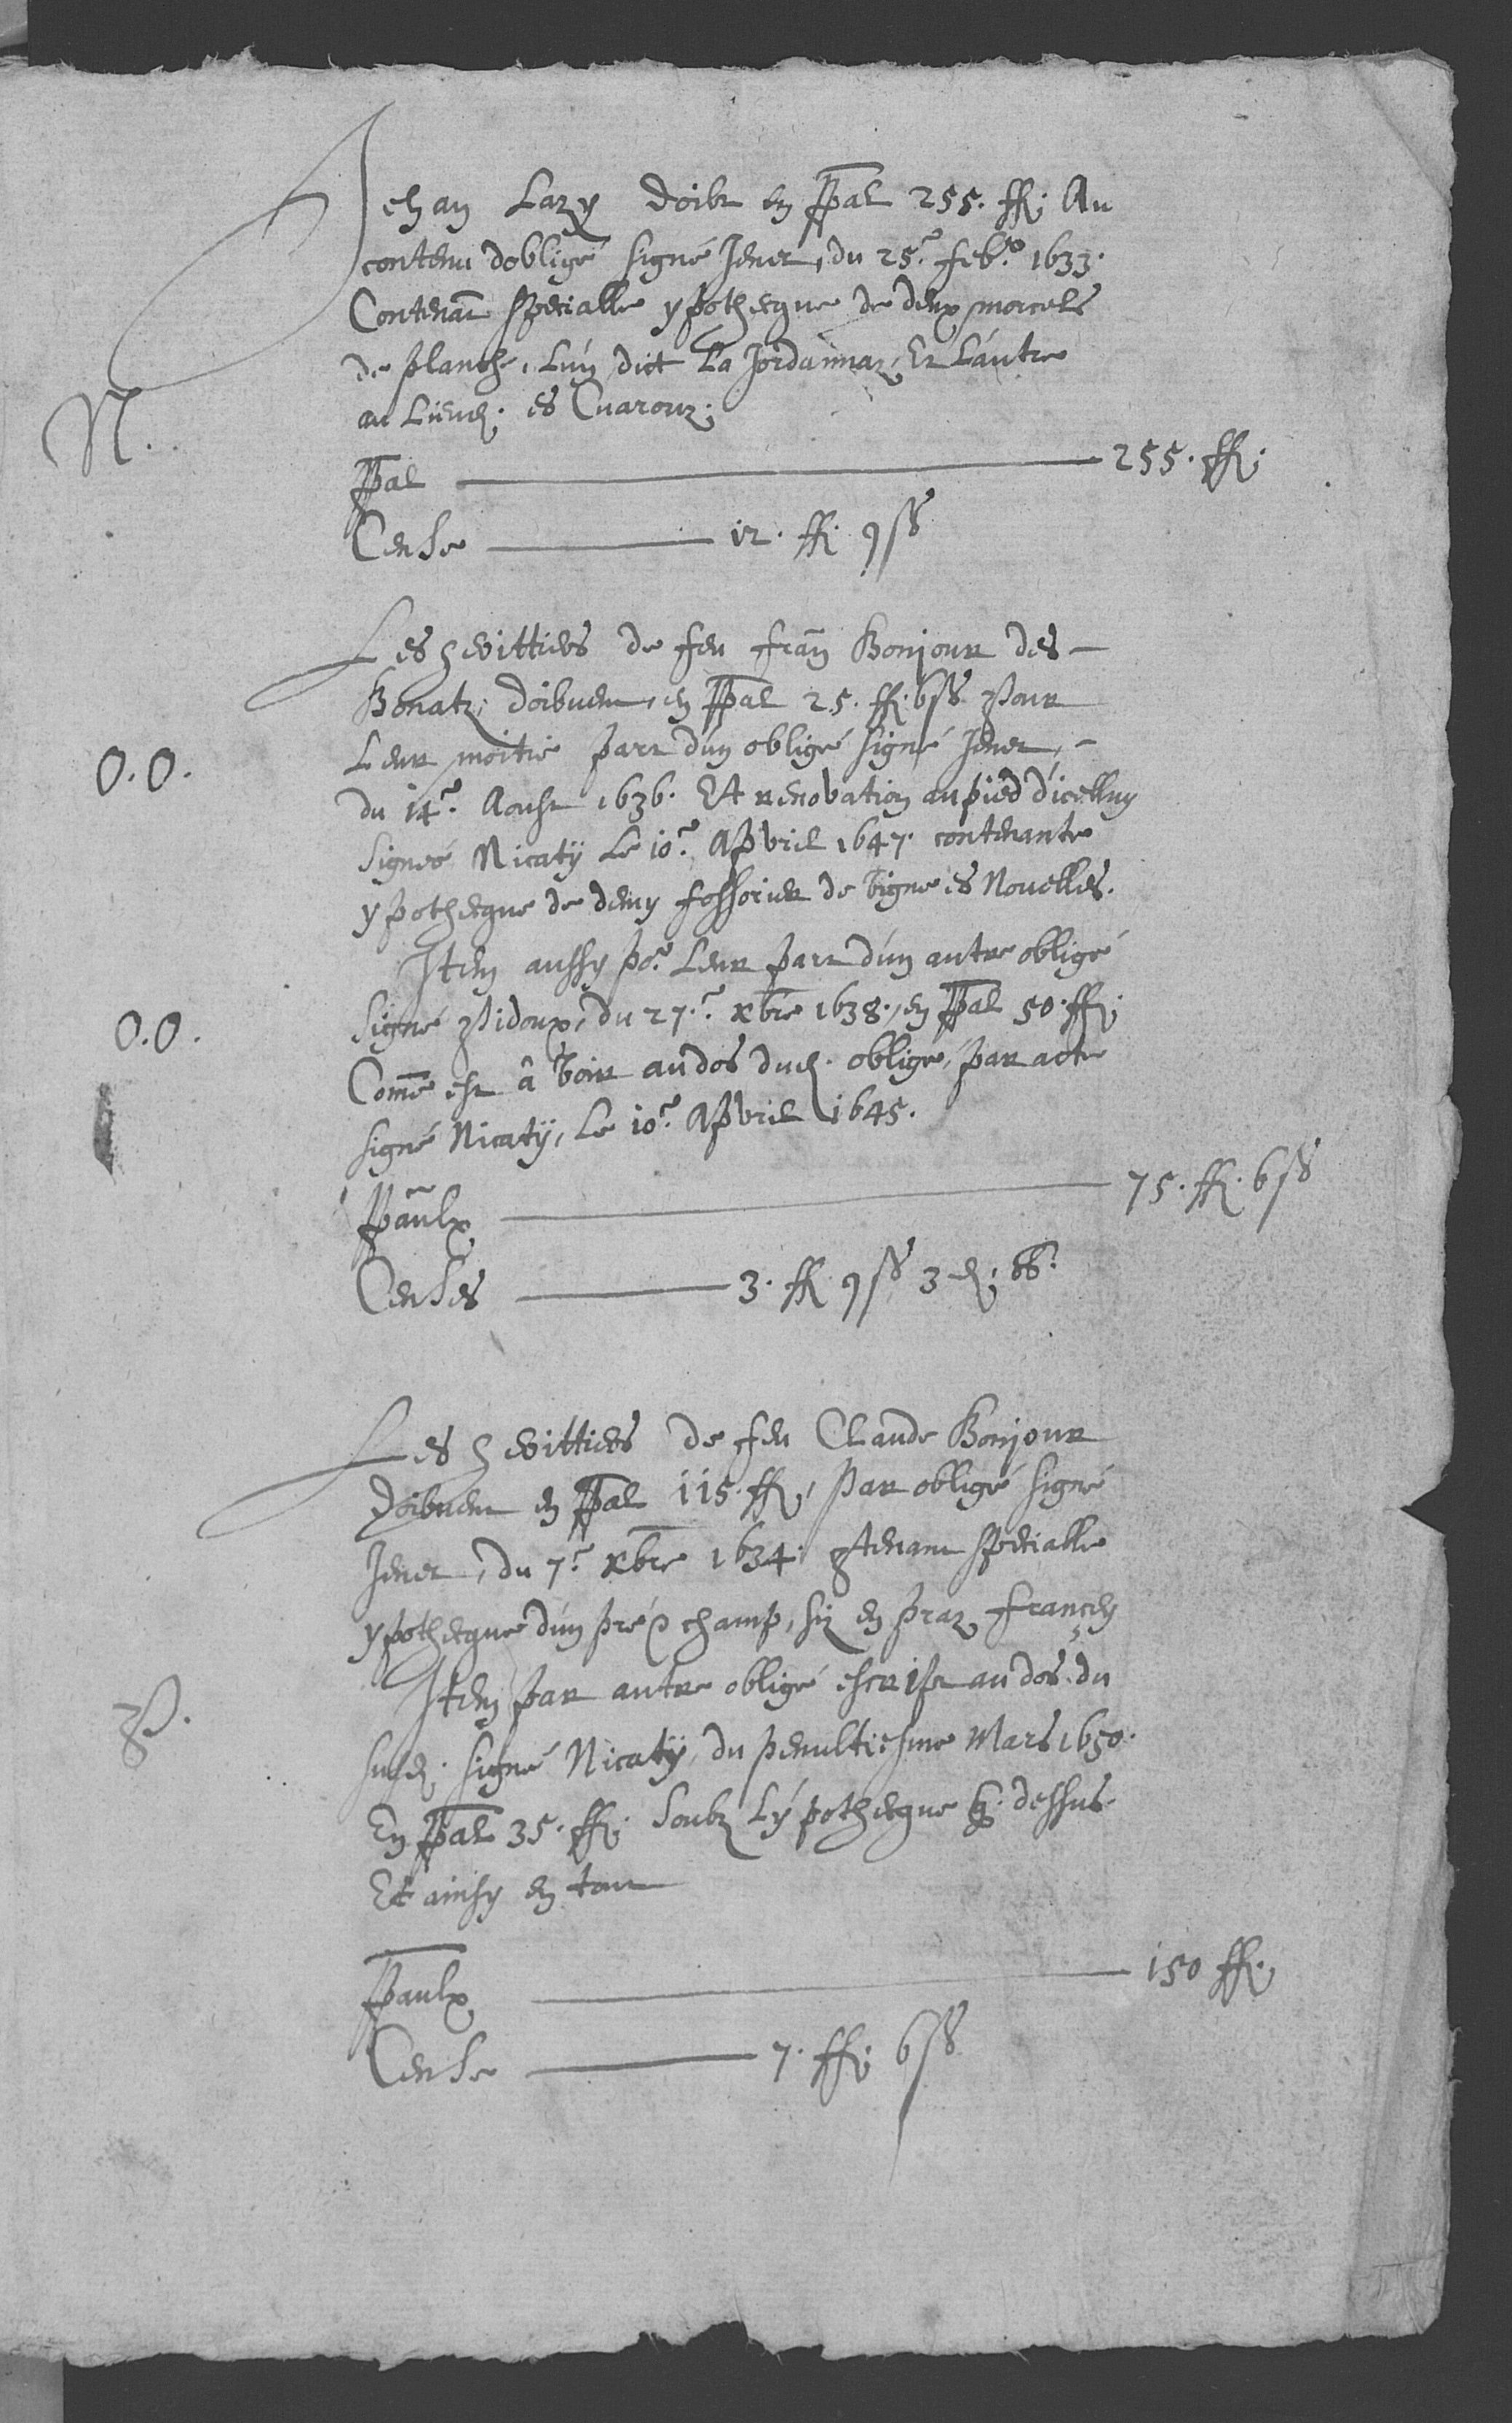 Jehan Lazy doibt en ppal 255. ff. Au
contenu dobligé signé Jenet, du 25.e feb.o 1633.
Contenāt specialle ypothecque de deux morcels
de planche, Lún dict La Jordannaz, Et Láutre
au Lieud. es Cuarouz.
N.
ppal 255. ff.
Cense 12. ff. 9 ss
Les herittiers de feu Fran Bonjour des
Bonatz, doibuent, en ppal 25. ff. 6 ss. Pour
Leur moitie part dún obligé signé Jenet,
O.O.
du 14.e Aoust 1636. Et renovation au pied dícelluy
Signeé Nicatÿ Le 10.e Apvril 1647. contenante
ypothecque de demy fossorier de vigne es Nouelles.
Item aussy po.r Leur part dún autre obligé
O.O.
signé Pidoux, du 27.e xbre 1638., en ppal 50. ff.
Comē est â voir au dos dud. obligé, par acte
signé Nicatÿ, Le 10.e Apvril 1645.
ppaulx 75. ff. 6 ss
Censes 3. ff. 9 ss 3 d.
Les herittiers de feu Claude Bonjour
Doibuent en ppal 115. ff., Par obligé signé
Jenet, du 7.e xbre 1634. 9tenant specialle
ypothecque dún pré & champ, siz en praz françey
Item par autre obligé escript au dos du
P.
susd. signé Nicatÿ, du penultiesme Mars 1650.
En ppal 35. ff. Soubz Lýpothecque q. dessus.
Et ainsy en tout
ppaulx 150 ff.
Cense 7. ff. 6 ss